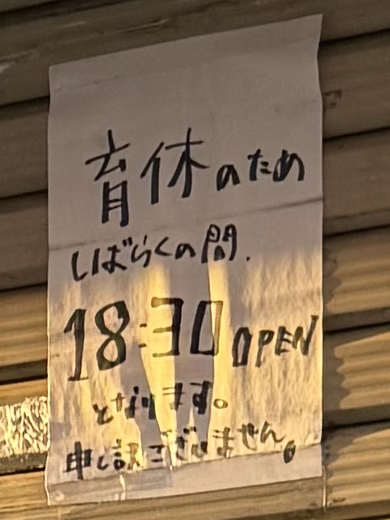 育休のため
しばらくの間、
18:30 OPEN
となります。
申し訳ございません。